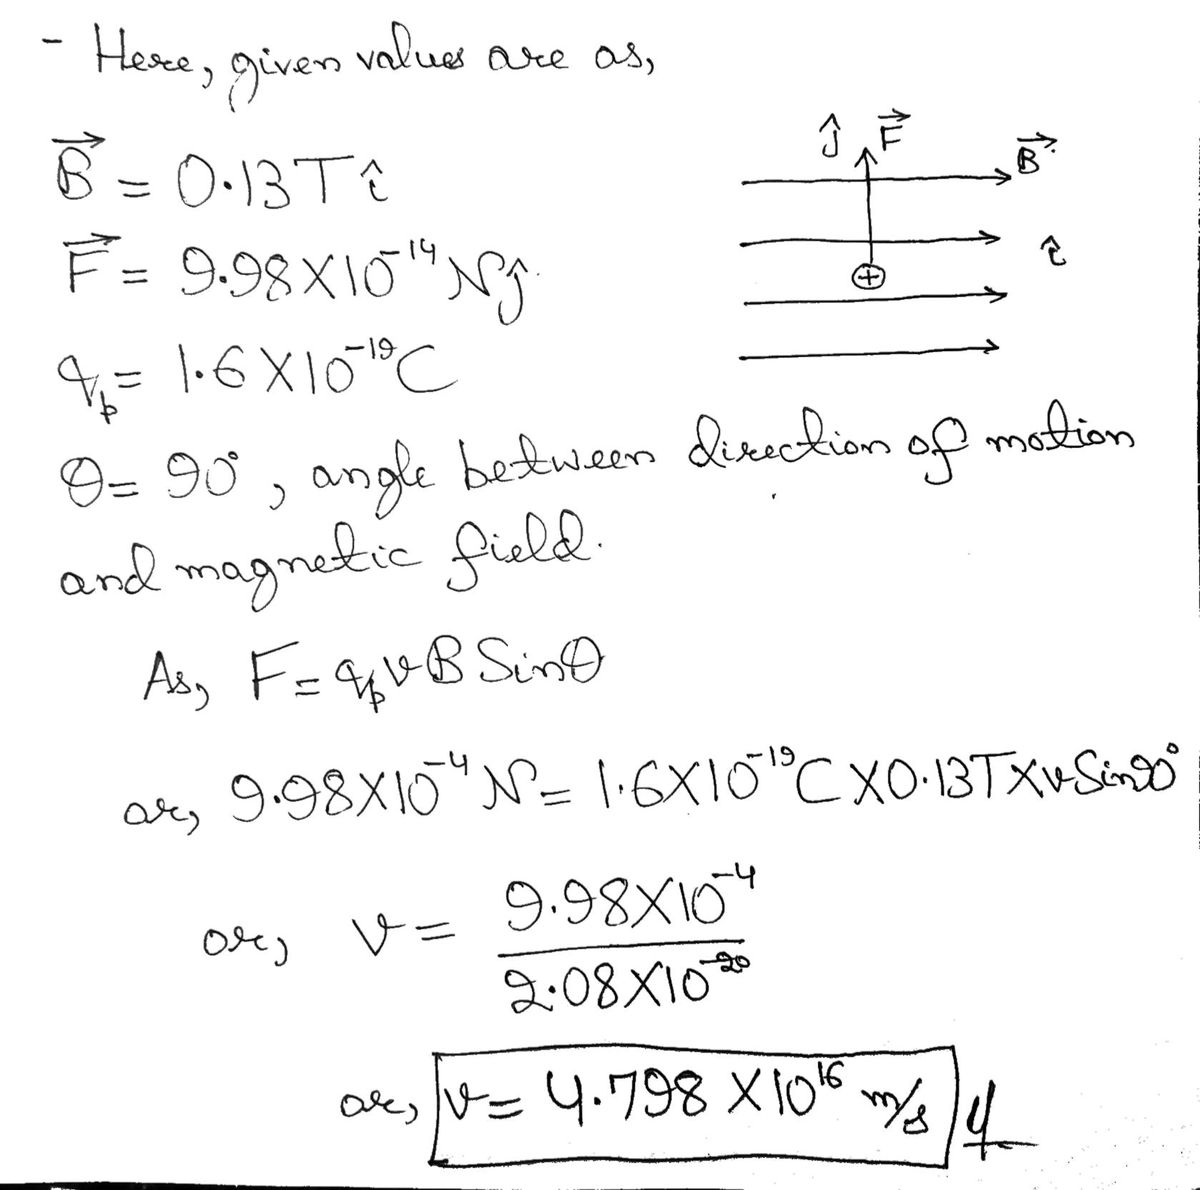 - Here, given values are as,
B⃗ = 0.13T î
F⃗ = 9.98X10⁻¹⁴ N ĵ
qₚ = 1.6X10⁻¹⁹C
ĵ F⃗
B⃗
î
+
θ = 90°, angle between direction of motion
and magnetic field.
As, F = qₚvB Sinθ
or, 9.98X10⁻⁴ N = 1.6X10⁻¹⁹C X0.13T XvSin90°
or, v = 9.98X10⁻⁴
2.08X10⁻²⁰
or, v = 4.798 X10¹⁶ m/s